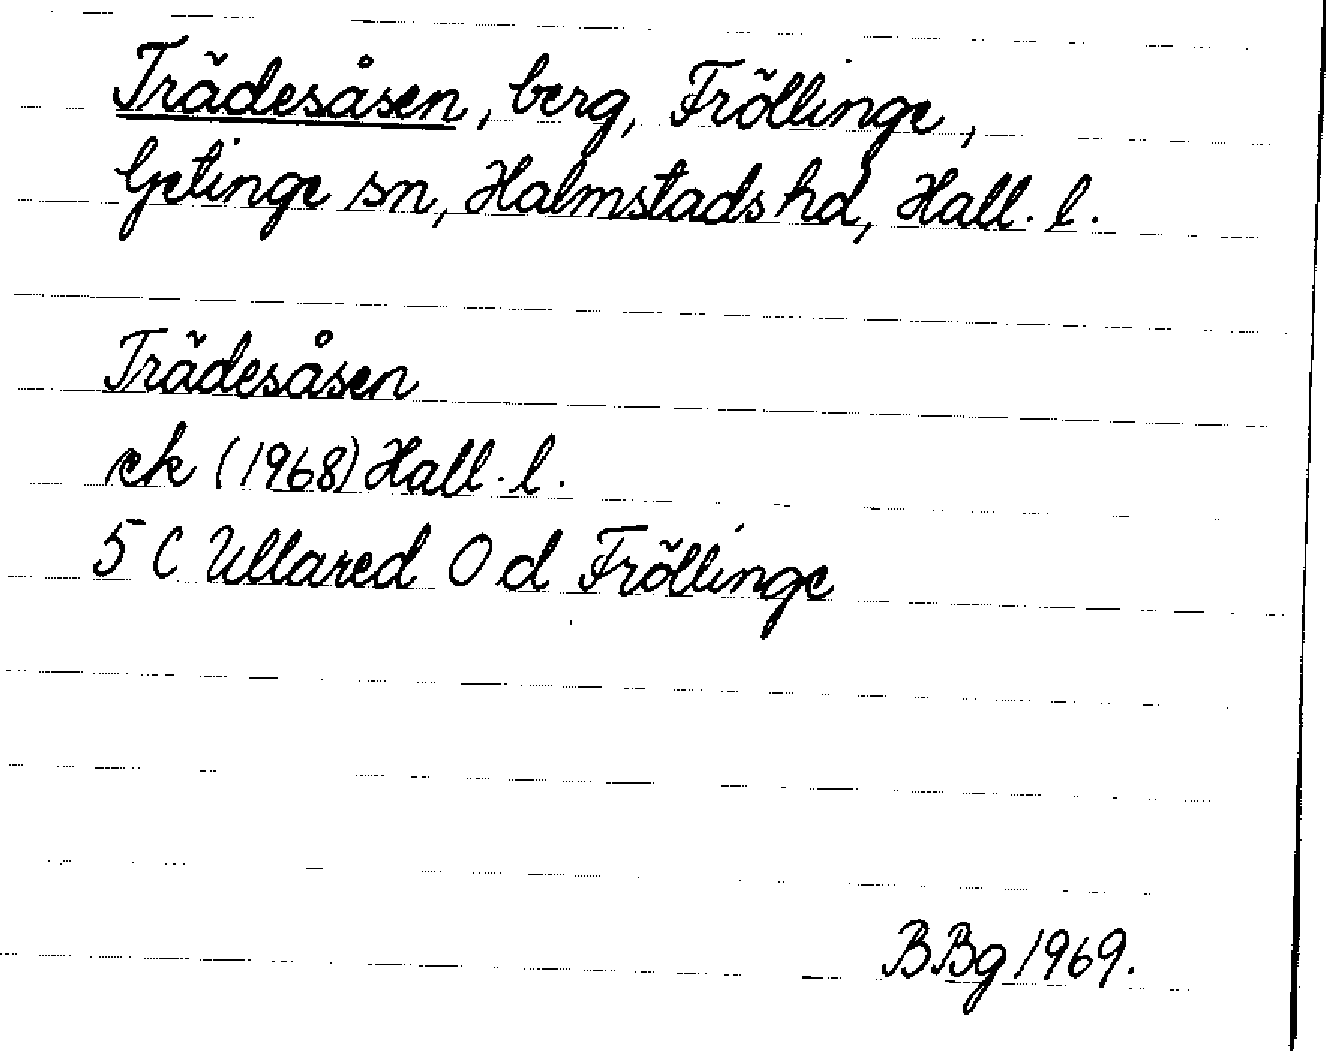 Trädesåsen, berg, Fröllinge,
Getinge sn, Halmstads hd, Hall. l.
Trädesåsen
ek (1968) Hall. l.
5 C Ullared 0 d Fröllinge
BBg 1969.